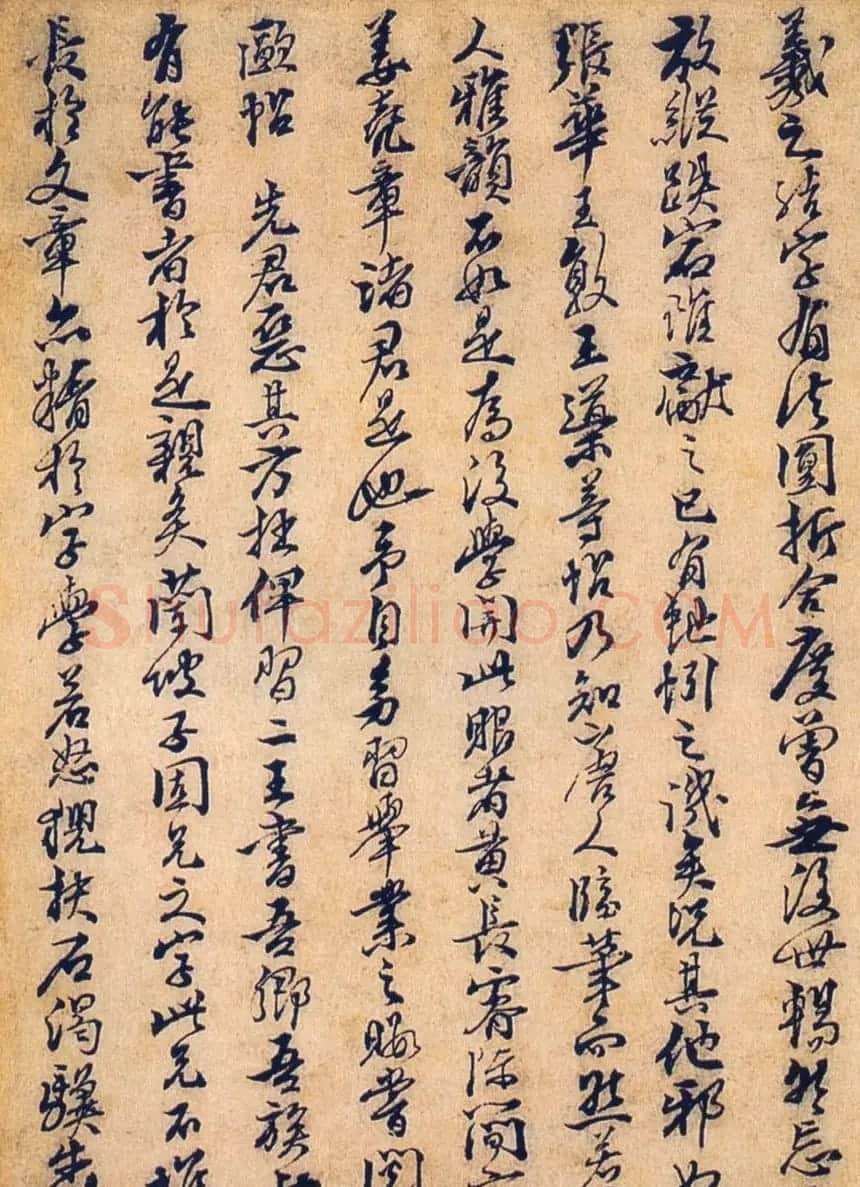 羲之結字有法圓折合度曾無後世暢然忘
放縱跌宕雖獻之已有虵蚓之譏矣況其他邪
張華王敦王導等帖乃知唐人臨摹而然若
人雅韻不如是為後學開此眼者黃長睿陳簡
姜堯章諸君是也予自幼習舉業之暇嘗閱
歐帖 先君惡其方拙俾習二王書吾鄉吾族
有能書者於是親炙蘭坡子固兄之字此兄不惟
長於文章亦精於字學若怒猊抉石渴驥奔
Shufaziliao.COM